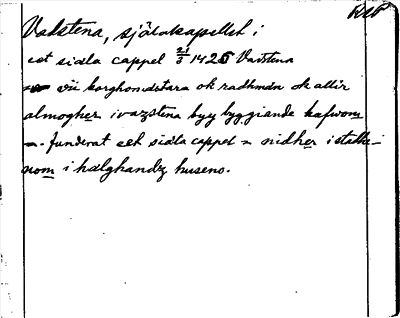 RAP
Vadstena, själakapellet i
eet siæla cappel 23/3 1425 Vadstena
wii borghamestara ok radhmän ok allir
almogher i vazstena byy byggiande hafwom
funderat eet siæla cappel nidher i stadhe-
nom i hælghandz huseno.